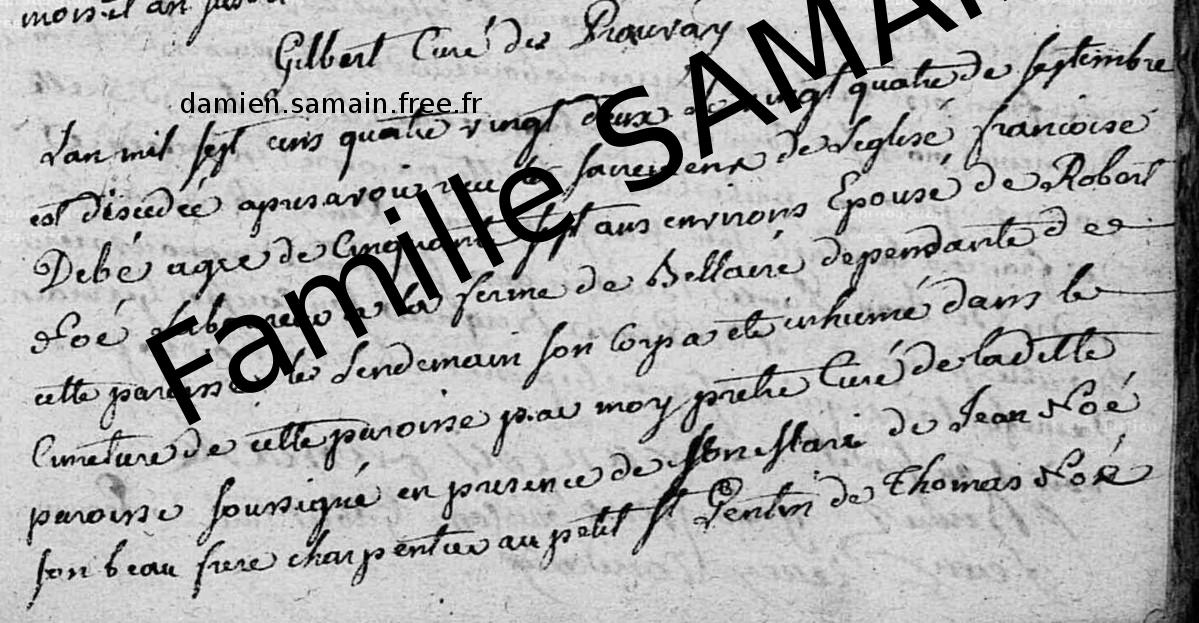 mois et an susd
Gilbert Curé des Prauvay
damien.samain.free.fr
Famille SAMA
L'an mil sept cens quatre vingt deux le vingt quatre de septembre
est décedée apres avoir recu les sacremens de L'eglise francoise
Debé agée de Cinquante sept ans environs Epouse de Robert
Noé laboureur a la ferme de Bellaire dependante de
cette paroisse le Lendemain son Corps a eté inhumé dans le
Cimetiere de cette paroisse par moy pretre Curé de ladette
paroisse soussigné en presence de son Mari de Jean Noé
son beau frere charpentier au petit St Quentin de Thomas Noé